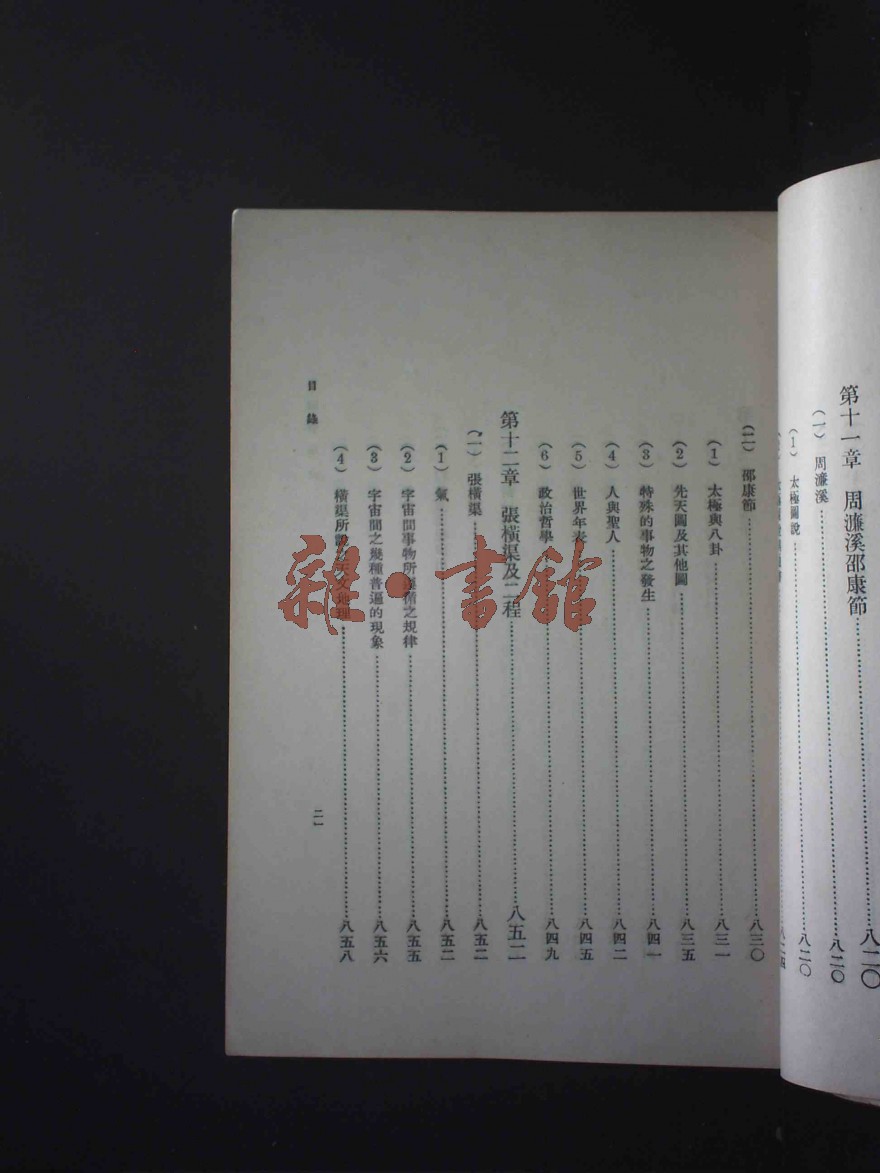 第十一章 周濂溪邵康節……八二〇
（一）周濂溪……八二〇
（1）太極圖說……八二〇
（二）邵康節……八三〇
（1）太極與八卦……八三一
（2）先天圖及其他圖……八三五
（3）特殊的事物之發生……八四一
（4）人與聖人……八四二
（5）世界年表……八四五
（6）政治哲學……八四九
第十二章 張橫渠及二程……八五二
（一）張橫渠……八五二
（1）氣……八五二
（2）宇宙間事物所遵循之規律……八五五
（3）宇宙間之幾種普遍的現象……八五六
（4）橫渠所說之天文地理……八五八
目錄
二一
雜·書館